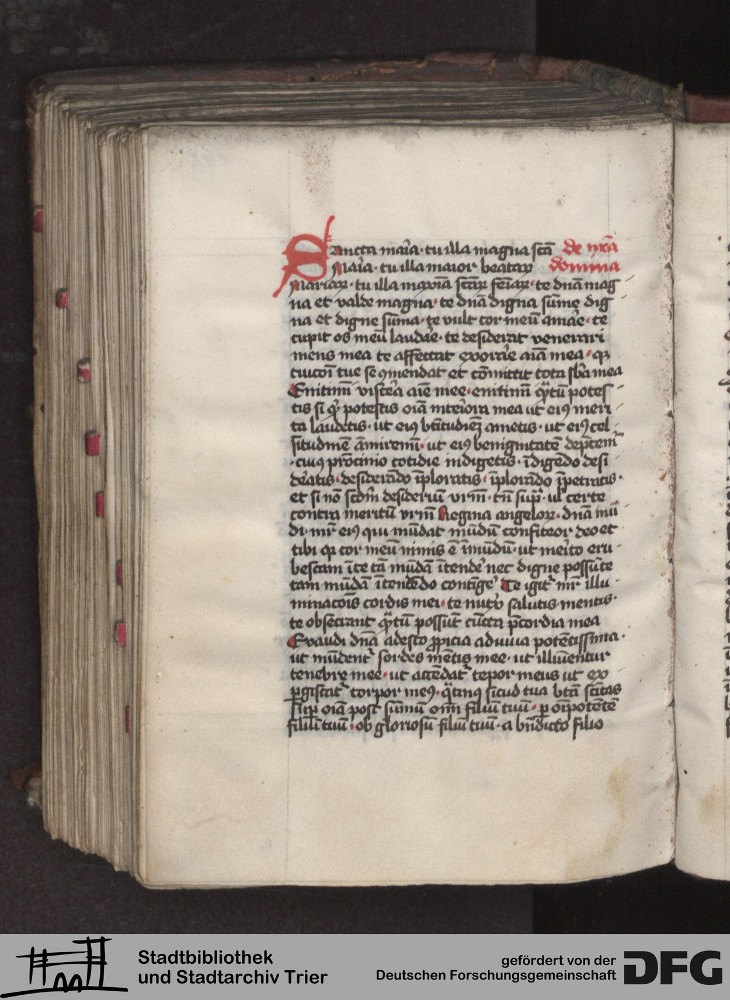 Sancta maīa · tu illa magna scā de nrā
Maīa · tu illa maior beataꝝ domina
Mariaꝝ · tu illa maxīa scāꝝ feīaꝝ · te dnām mag
na et valde magna · te dnā digna sūme dig
na et digne sūma · te vult cor meū amāe · te
cupit os meū laudāe · te desiderat venerari
mens mea te affectat exorāe aīa mea · qꝫ
tuicoī tue se ꝯmendat et cōmittit tota sbā mea
Enitimī viscēa aīe mee · enitimī qᷓtū potes
tis si qͥ potestis oīa inteīora mea ut eiꝰ meri
ta laudetis · ut eiꝰ btītudiēꝫ ametis · ut eiꝰ cel
situdinē āmiremī · ut eiꝰ benignitatē dep̄cemī
· cuiꝰ pͦcinio cotidie indigetis · īdigēdo desi
dēatis · desiderādo īploratis · īplorādo īpetratis ·
et si nō scdm̄ desideriū vrm̄ · tn̄ sup̄ · ul certe
contra meritū vrm̄ Regina angeloꝝ · dnā mū
di · mr̄ eiꝰ qui mūdat mūdū confiteor deo et
tibi qꝫ cor meū nimis ē īmūdū · ut meīto eru
bescam īte tā mūdā ītendē nec digne possūte
tam mūdā ītendēdo contingē Te igit᷑ mr̄ illu
minacōīs cordis mei · te nutͥx salutis mentis ·
te obsecrant qᷓtū possūt cūcta p̄cordia mea
Exaudi dnā adesto ꝓpicia adiuua potētissima ·
ut mūdent᷑ sordes mētis mee · ut illuīentur
tenebre mee · ut accēdat᷑ tepor meus ut ex
ꝑgiscat᷑ torpor meꝰ · qᷓtinꝰ sicud tua btā scītas
sup̄ oīa post sūmū oīm filiū tuū · ꝑ oīpotētē
filiū tuū · ob gloriosū filiū tuū · a bn̄dicto filio
Stadtbibliothek
und Stadtarchiv Trier
gefördert von der
Deutschen Forschungsgemeinschaft
DFG